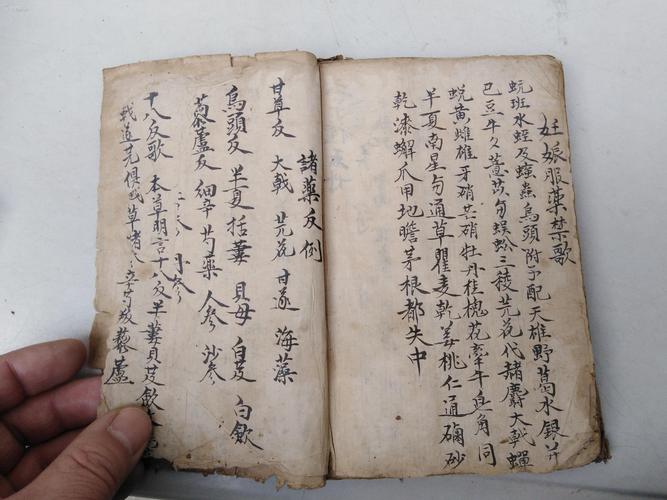 妊娠服藥禁歌
蚖班水蛭及蝱蟲烏頭附子配天雄野葛水銀并
巴豆牛夕薏苡勻蜈蚣三稜芫花代諸麝大戟蟬
蜕黄雌雄牙硝芒硝牡丹桂槐花牽牛皂角同
半夏南星勻通草瞿麦乾姜桃仁通硇砂
乾漆蠏爪甲地膽茅根都失中
諸藥反例
甘草反 大戟 芫花 甘遂 海藻
烏頭反 半夏 括蔞 貝母 白芨 白歛
藜蘆反 細辛 芍藥 人參 沙參
丹參
十八反歌 本草明言十八反半蒌貝芨歛
戟遂芫俱战草 藜蘆